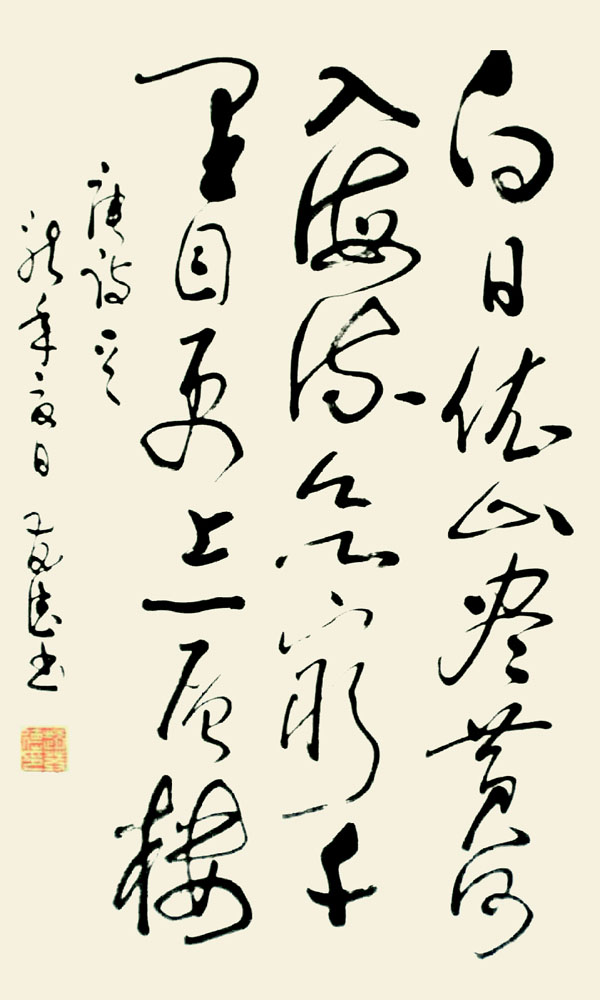 白日依山尽黄河
入海流欲穷千
里目更上一层楼
唐诗一首
龙年夏日书